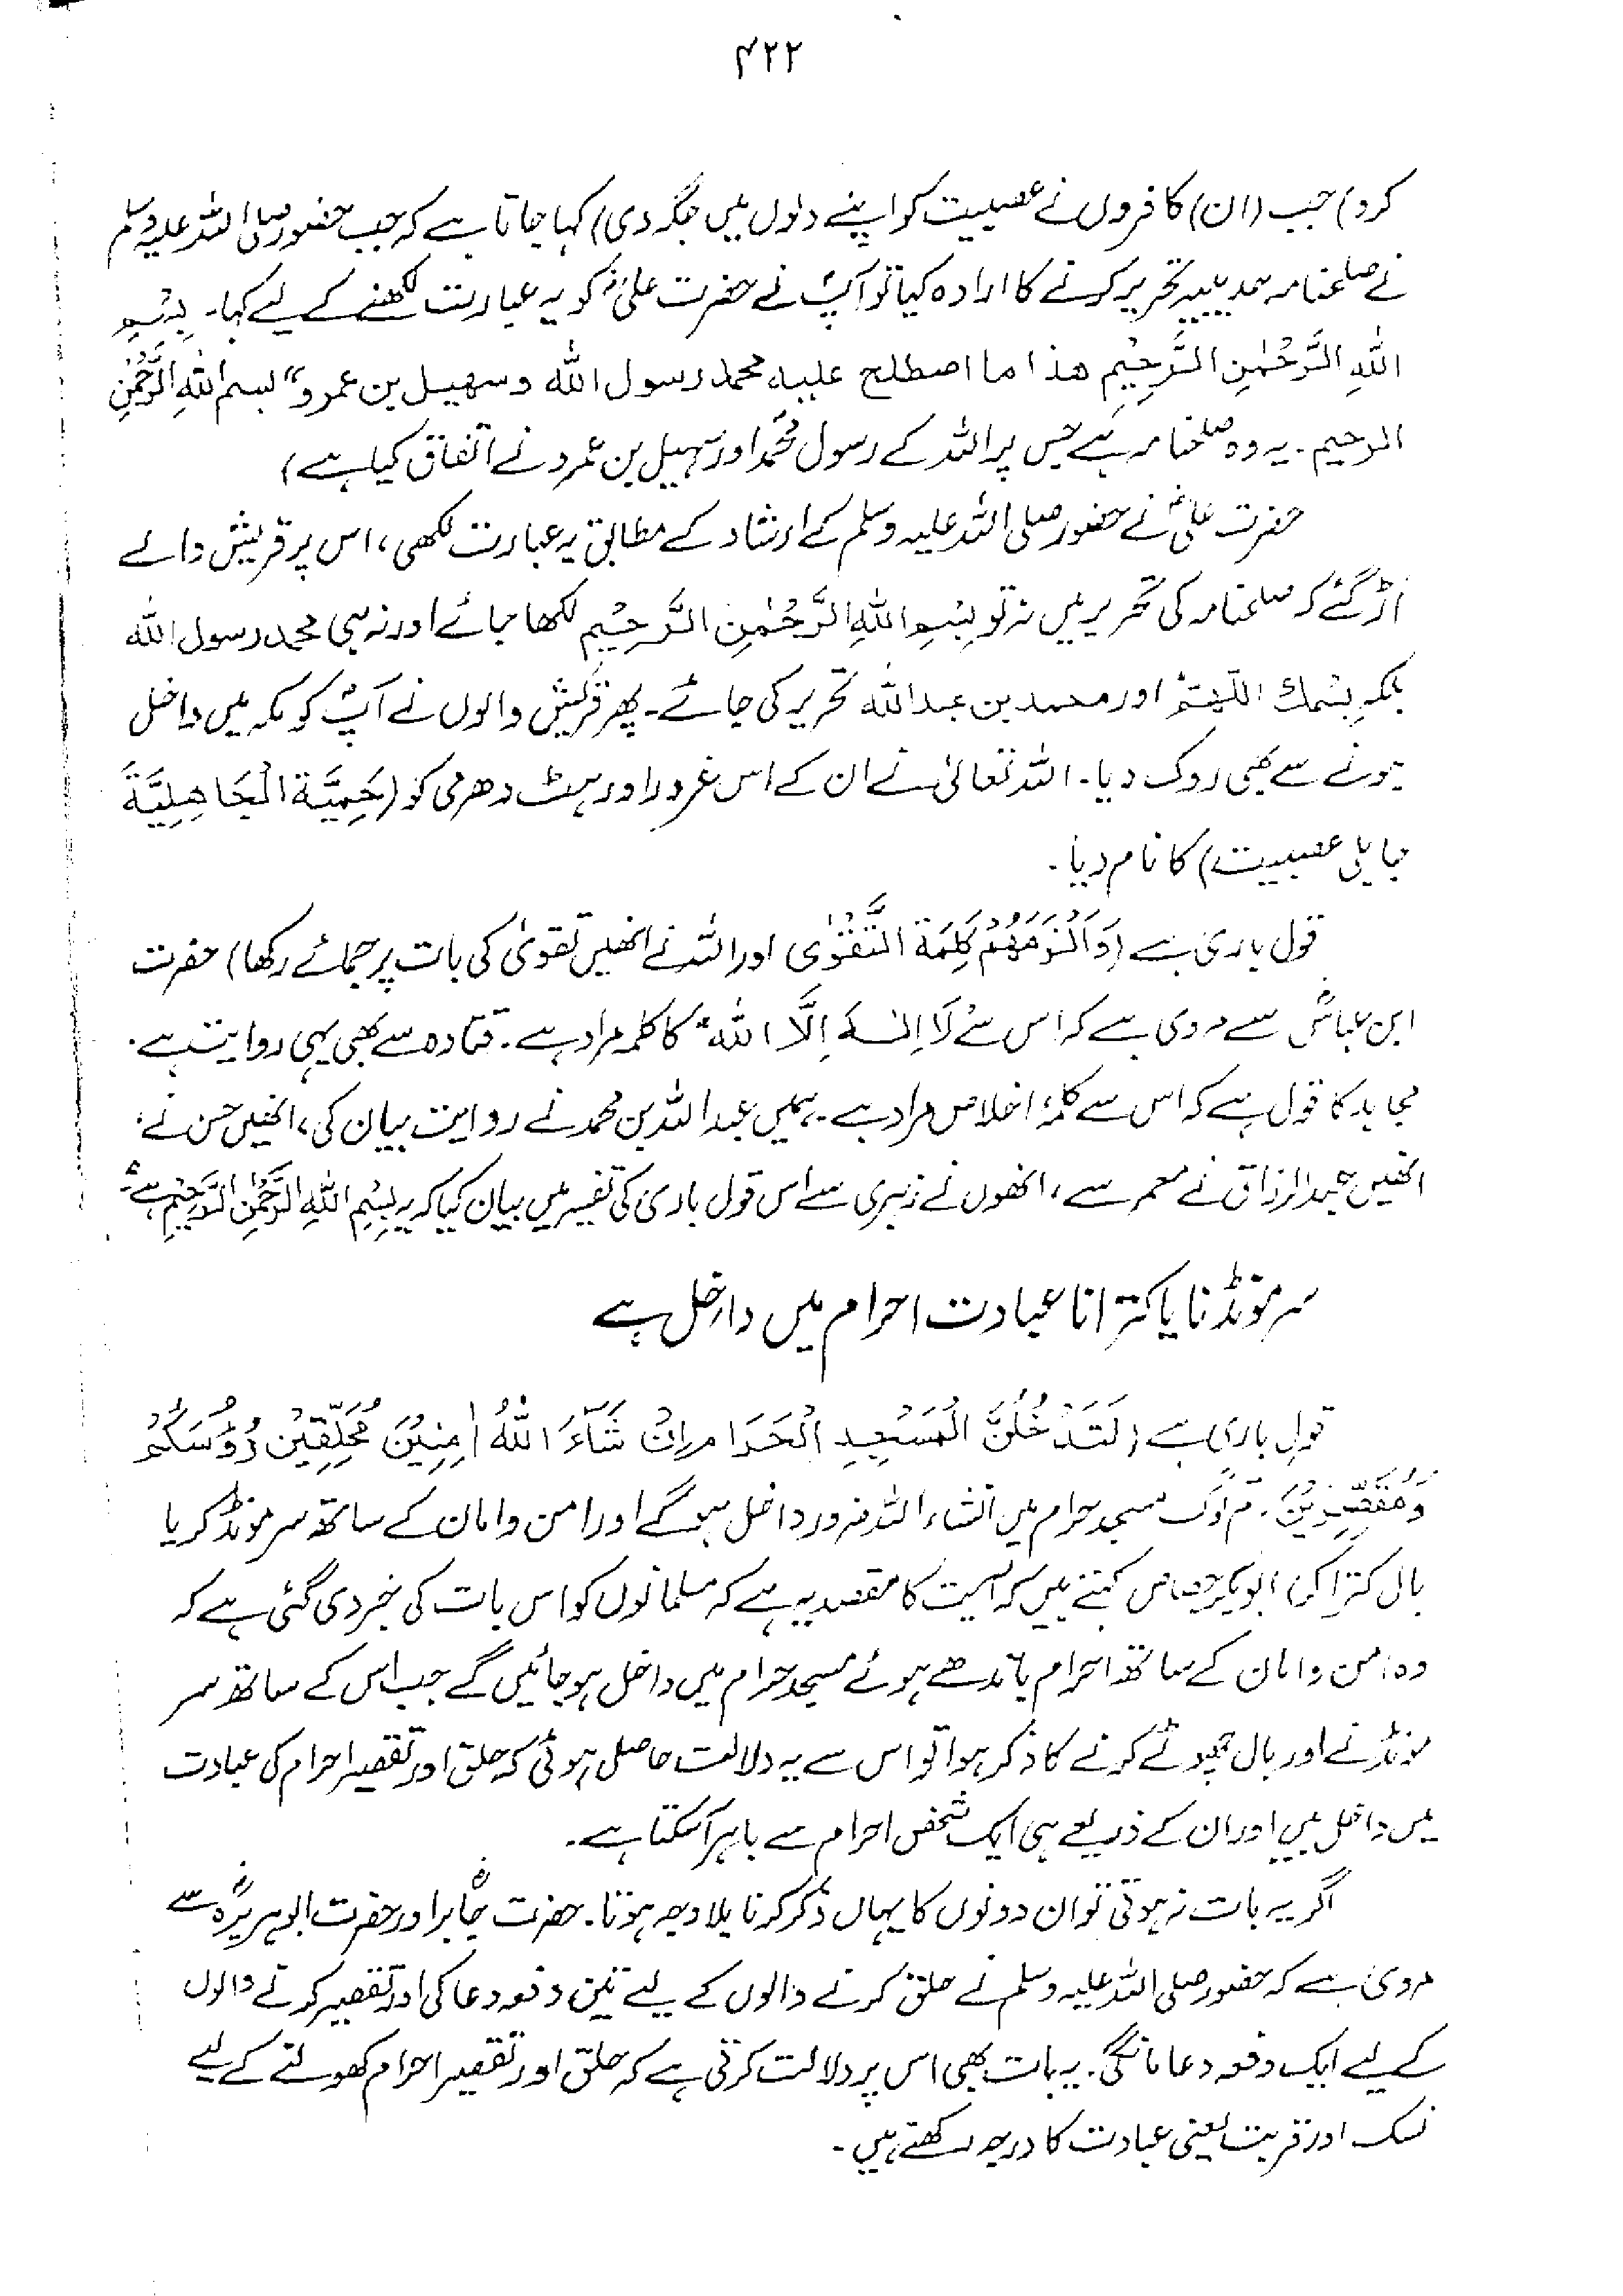 ۴۲۲
کرو) جب (ان) کافروں نے عصبیت کو اپنے دلوں میں جگہ دی) کہا جاتا ہے کہ جب حضور صلی اللہ علیہ وسلم
نے صلحنامہ حدیبیہ تحریر کرنے کا ارادہ کیا تو آپؐ نے حضرت علیؓ کو یہ عبارت لکھنے کے لیے کہا۔ بِسْمِ
اللّٰہِ الرَّحْمٰنِ الرَّحِیْمِ ھذا ما اصطلح علیہ محمد رسول اللّٰہ وسھیل بن عمرو" بسم اللّٰہِ الرَّحْمٰنِ
الرحیم۔ یہ وہ صلحنامہ ہے جس پر اللہ کے رسول محمدؐ اور سہیل بن عمرو نے اتفاق کیا ہے)
حضرت علیؓ نے حضور صلی اللہ علیہ وسلم کے ارشاد کے مطابق یہ عبارت لکھی، اس پر قریش والے
اڑ گئے کہ صلحنامہ کی تحریر میں نہ تو بِسْمِ اللّٰہِ الرَّحْمٰنِ الرَّحِیْمِ لکھا جائے اور نہ ہی محمد رسول اللّٰہ
بلکہ بِسْمِكَ اللّٰھُمَّ اور محمد بن عبد اللّٰہ تحریر کی جائے۔ پھر قریش والوں نے آپؐ کو مکہ میں داخل
ہونے سے بھی روک دیا۔ اللہ تعالیٰ نے ان کے اس غرور اور ہٹ دھرمی کو (حَمِیَّۃَ الْجَاھِلِیَّۃَ
جاہلی عصبیت) کا نام دیا۔
قول باری ہے (وَاَلْزَمَھُمْ کَلِمَۃَ التَّقْوٰی اور اللہ نے انھیں تقویٰ کی بات پر جمائے رکھا) حضرت
ابن عباسؓ سے مروی ہے کہ اس سے لَا اِلٰہَ اِلَّا اللّٰہ" کا کلمہ مراد ہے۔ قتادہ سے بھی یہی روایت ہے۔
مجاہد کا قول ہے کہ اس سے کلمۂ اخلاص مراد ہے۔ ہمیں عبد اللہ بن محمد نے روایت بیان کی، انھیں حسن نے،
انھیں عبد الرزاق نے معمر سے، انھوں نے زہری سے اس قول باری کی تفسیر میں بیان کیا کہ یہ بِسْمِ اللّٰہِ الرَّحْمٰنِ الرَّحِیْمِ ہے۔
سر مونڈنا یا کترانا عبادت احرام میں داخل ہے
قول باری ہے (لَتَدْخُلُنَّ الْمَسْجِدِ الْحَرَامَ اِنْ شَآءَ اللّٰہُ اٰمِنِیْنَ مُحَلِّقِیْنَ رُؤُسَکُمْ
وَمُقَصِّرِیْنَ۔ تم لوگ مسجد حرام میں انشاء اللہ ضرور داخل ہوگے اور امن وامان کے ساتھ سر مونڈ کر یا
بال کترا کر) ابوبکر جصاص کہتے ہیں کہ آیت کا مقصد یہ ہے کہ مسلمانوں کو اس بات کی خبر دی گئی ہے کہ
وہ امن وامان کے ساتھ احرام باندھے ہوئے مسجد حرام میں داخل ہو جائیں گے جب اس کے ساتھ سر
مونڈنے اور بال چھوٹے کرنے کا ذکر ہوا تو اس سے یہ دلالت حاصل ہوئی کہ حلق اور تقصیر احرام کی عبادت
میں داخل ہیں اور ان کے ذریعے ہی ایک شخص احرام سے باہر آ سکتا ہے۔
اگر یہ بات نہ ہوتی تو ان دونوں کا یہاں ذکر کرنا بلا وجہ ہوتا۔ حضرت جابرؓ اور حضرت ابوہریرہؓ سے
مروی ہے کہ حضور صلی اللہ علیہ وسلم نے حلق کرنے والوں کے لیے تین دفعہ دعا کی اور تقصیر کرنے والوں
کے لیے ایک دفعہ دعا مانگی۔ یہ بات بھی اس پر دلالت کرتی ہے کہ حلق اور تقصیر احرام کھولنے کے لیے
نسک اور قربت یعنی عبادت کا درجہ رکھتے ہیں۔